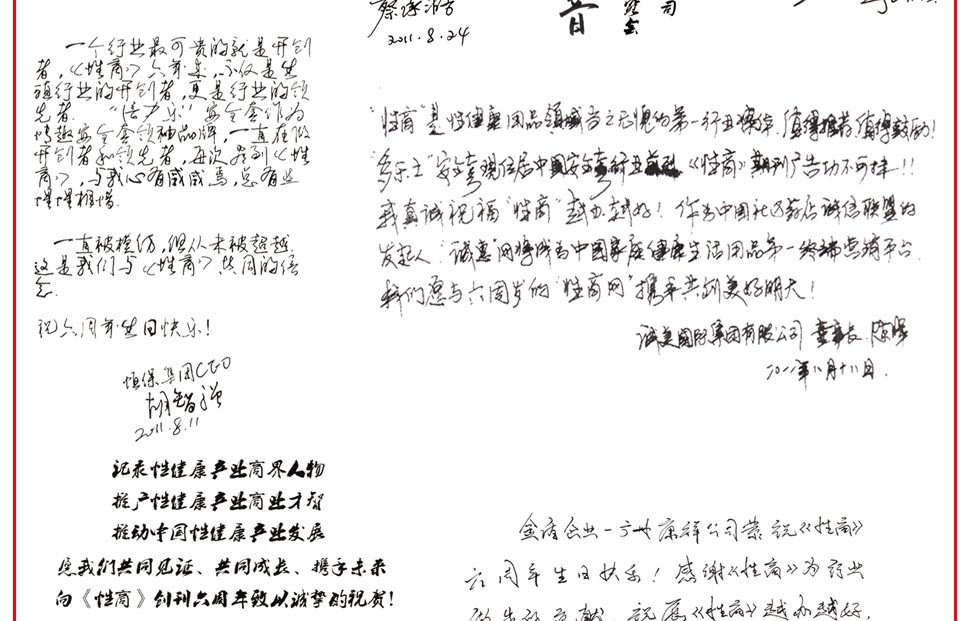 2011.8.24
一个行业最可贵的就是开创
者,《性商》六年来,不仅是生
殖行业的开创者,更是行业的领
先者. "倍力乐"安全套作为
情趣安全套领袖品牌,一直在做
开创者和领先者,再次看到《性
商》,与我心有戚戚焉,总有些
惺惺相惜.
一直被模仿,但从未被超越.
这是我们与《性商》共同的信
念.
祝六周年生日快乐!
恒保集团CEO
胡智强
2011.8.11
记录性健康产业商界人物
推产性健康产业商业才智
推动中国性健康产业发展
愿我们共同见证、共同成长、携手未来
向《性商》创刊六周年致以诚挚的祝贺!
"性商"是性健康用品领域当之无愧的第一行业媒体,值得推荐,值得鼓励!
多乐士"安全套现位居中国安全套行业前列《性商》期刊广告功不可抹!!
我真诚祝福"性商"越办越好!作为中国社区药店诚信联盟的
发起人"诚惠"网将成为中国家庭健康生活用品第一终端营销平台.
我们愿与六周岁的"性商网"携手共创美好明天!
诚美国际集团有限公司 董事长
2011年八月十八日.
企业—广州康祥公司恭祝《性商》
六周年生日快乐!感谢《性商》为药业
做出的贡献,祝愿《性商》越办越好,